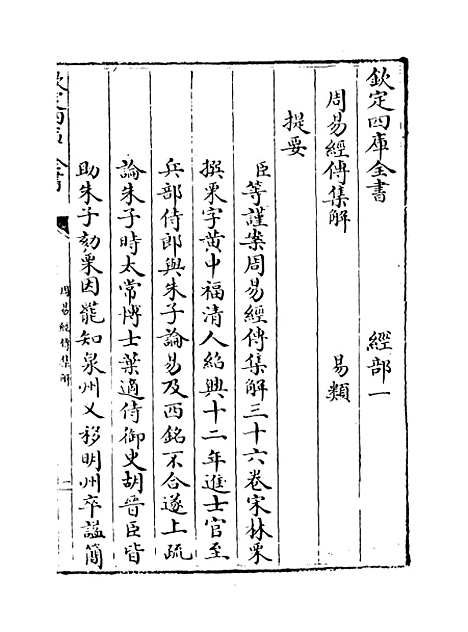 欽定四庫全書　經部一
周易經傳集解　易類
提要
臣等謹案周易經傳集解三十六卷宋林栗
撰栗字黄中福清人紹興十二年進士官至
兵部侍郎與朱子論易及西銘不合遂上疏
論朱子時太常博士葉適侍御史胡晉臣皆
助朱子劾栗因罷知泉州又移明州卒諡簡
欽定四庫全書
周易經傳集解
一